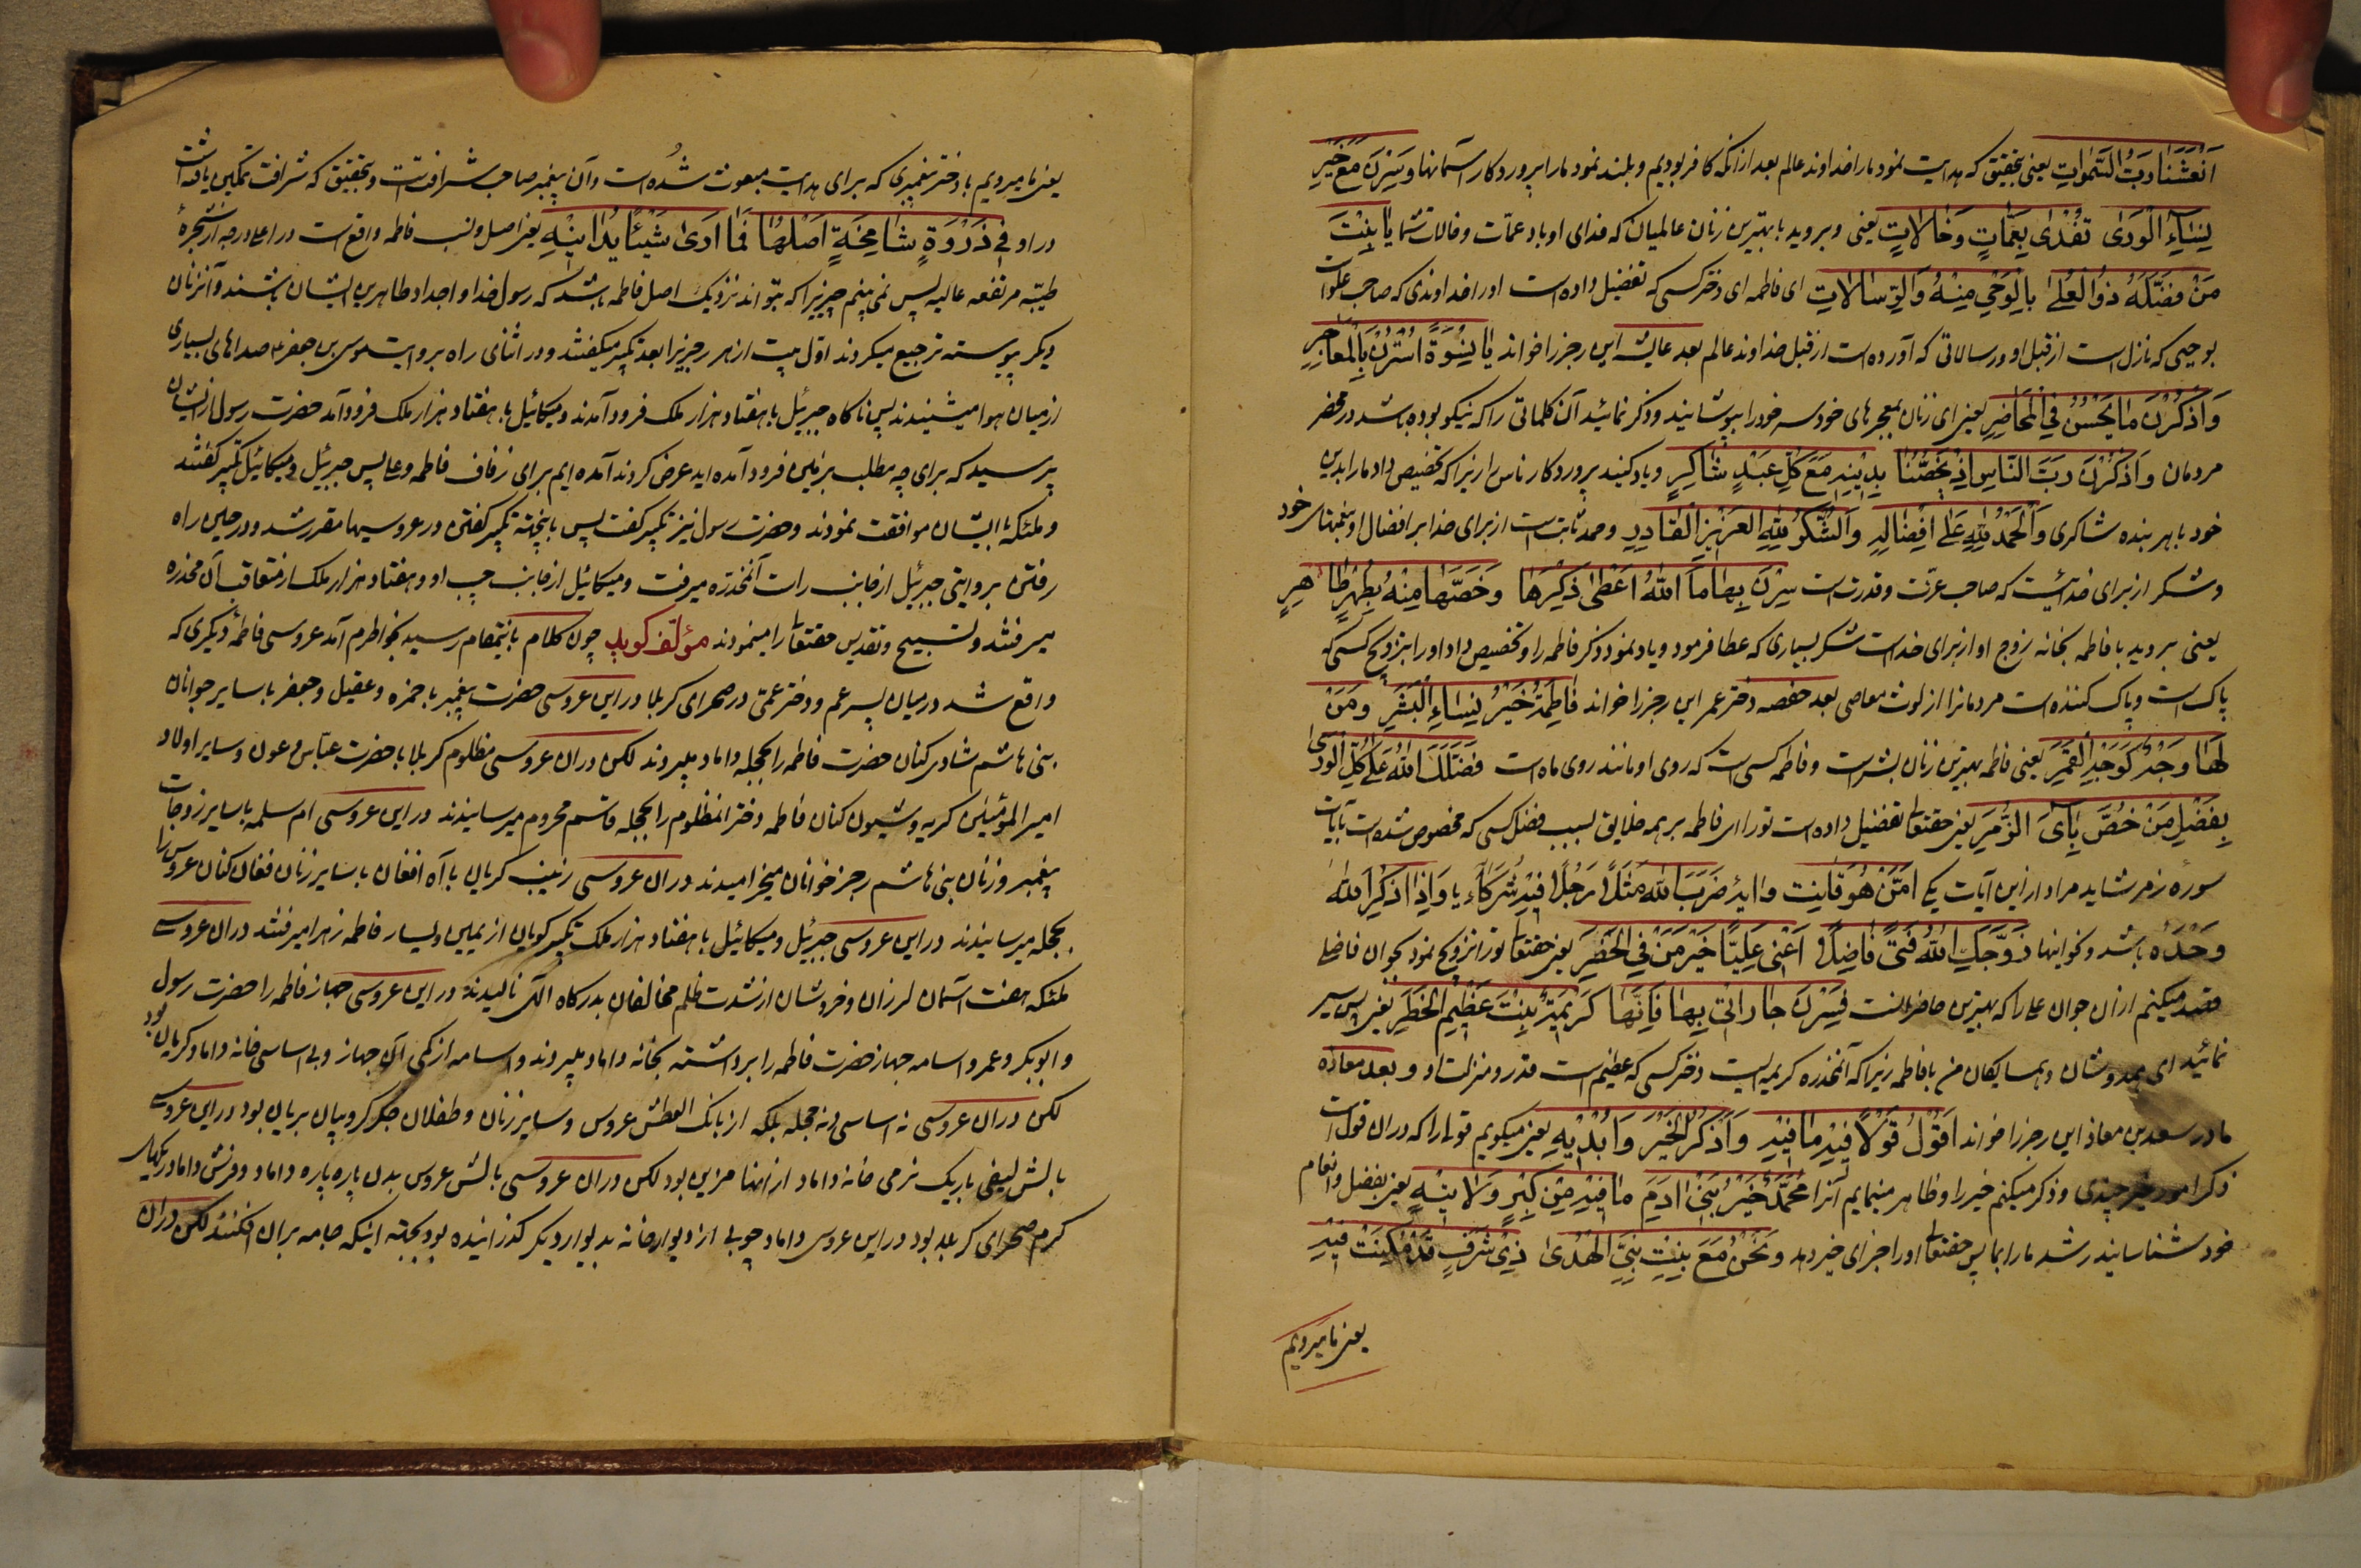 اَنْعَشَنا رَبُّ السَّمٰواتِ یعنی بتحقیق که هدایت نمود ما را خداوند عالم بعد از انکه کافر بودیم و بلند نمود ما را پروردکار آسمانها وَسِرْنَ مَعْ خَیْرِ
نِسٰاءِ الْوَرٰی تُفْدٰی بِعَمّاتٍ وَخٰالاتٍ یعنی و بروید با بهترین زنان عالمیان که فدای او باد عمّات و خالات شما یٰا بِنْتَ
مَنْ فَضَّلَهُ ذُو الْعُلٰی بِالْوَحْیِ مِنْهُ وَالرِّسٰالاتِ ای فاطمه ای دختر کسی که تفضیل داده است او را خداوندی که صاحب علو است
بوحیی که نازل است از قبل او و رسالاتی که آورده است از قبل خداوند عالم بعد عایشه این رجز را خواند یٰا نِسْوَةً اسْتَتِرْنَ بِالْمَعٰاجِرِ
وَاذْکُرْنَ مٰا یَحْسُنُ فِی الْمَحٰاضِرِ یعنی ای زنان بمعجرهای خود سر خود را بپوشانید و ذکر نمائید آن کلماتی را که نیکو بوده باشد در محضر
مردمان وَاذْکُرْنَ رَبَّ النّٰاسِ اِذْ یَخُصُّنٰا بِدینِهِ مَعَ کُلِّ عَبْدٍ شٰاکِرٍ و یاد کنید پروردکار ناس را زیرا که تخصیص داد ما را بدین
خود با هر بنده شاکری وَالْحَمْدُ لِلّٰهِ عَلٰی اِفْضٰالِهِ وَالشُّکْرُ لِلّٰهِ الْعَزیزِ الْقٰادِرِ و حمد ثابت است از برای خدا بر افضال او و نعمتهای خود
و شکر از برای خدائیست که صاحب عزّت و قدرت است سِرْنَ بِهٰا فَاللّٰهُ اَعْطٰی ذِکْرَهٰا وَخَصَّهٰا مِنْهُ بِطُهْرٍ طٰاهِرٍ
یعنی بروید با فاطمه بخانه زوج او از برای خداست شکر بسیاری که عطا فرمود و یاد نمود ذکر فاطمه را و تخصیص داد او را بتزویج کسی که
پاک است و پاک کننده است مردمانرا از لوث معاصی بعد حفصه دختر عمر این رجز را خواند فٰاطِمَةُ خَیْرُ نِسٰاءِ الْبَشَرِ وَمَنْ
لَهٰا وَجْهٌ کَوَجْهِ الْقَمَرِ یعنی فاطمه بهترین زنان بشر است و فاطمه کسی است که روی او مانند روی ماه است فَضَّلَکِ اللّٰهُ عَلٰی کُلِّ الْوَرٰی
بِفَضْلِ مَنْ خُصَّ بِآیِ الزُّمَرِ یعنی حقتعالی تفضیل داده است تو را ای فاطمه بر همه خلایق بسبب فضل کسی که مخصوص شده است بآیات
سوره زمر شاید مراد از این آیات یکی اَمَّنْ هُوَ قٰانِت و آیه ضَرَبَ اللّٰهُ مَثَلًا رَجُلًا فیهِ شُرَکٰاءُ یا وَاِذٰا ذُکِرَ اللّٰهُ
وَحْدَهُ باشد و نحو اینها زَوَّجَکِ اللّٰهُ فَتًی فٰاضِلًا اَعْنی عَلِیًّا خَیْرَ مَنْ فِی الْحَضَرِ یعنی حقتعالی تو را تزویج نمود بجوان فاضلی
قصد میکنم از ان جوان علی را که بهترین حاضرانست فَسِرْنَ جٰارٰاتی بِهٰا فَاِنَّهٰا کَریمَةٌ بِنْتُ عَظیمِ الْخَطَرِ یعنی پس سیر
نمائید ای همدوشان و همسایکان من با فاطمه زیرا که آنمخدره کریمه ایست دختر کسی که عظیم است قدر و منزلت او و بعد معاذه
مادر سعد بن معاذ این رجز را خواند اَقُولُ قَوْلًا فیهِ مٰا فیهِ وَاَذْکُرُ الْخَیْرَ وَاُبْدیهِ یعنی میکویم قولی را که در ان قول است
ذکر امور خیر چندی و ذکر میکنم خیر را و ظاهر مینمایم آنرا مُحَمَّدٌ خَیْرُ بَنی آدَمَ مٰا فیهِ مِنْ کِبْرٍ وَلاٰ تیهٍ یعنی بفضل و انعام
خود شناسانید رشد ما را بما پس حقتعالی او را جزای خیر دهد وَنَحْنُ مَعَ بِنْتِ نَبِیِّ الْهُدٰی ذی شَرَفٍ قَدْ مُکِّنَتْ فیهِ
یعنی ما میرویم
یعنی ما میرویم با دختر پیغمبری که برای هدایت مبعوث شده است و آن پیغمبر صاحب شرافتست و بتحقیق که شرافت تمکین یافته است
در او فی ذَرْوَةٍ شٰامِخَةٍ اَصْلُهٰا فَمٰا اَرٰی شَیْئًا یُدٰانیهِ یعنی اصل و نسب فاطمه واقع است در اعلی درجه از شجرهٔ
طیّبه مرتفعه عالیه پس نمی بینم چیزیرا که بتواند نزدیک اصل فاطمه باشد که رسول خدا و اجداد طاهرین ایشان باشند و آنزنان
دیکر پیوسته ترجیع میکردند اوّل بیت از هر رجزیرا بعد تکبیر میکفتند و در اثنای راه بروایت موسی بن جعفر ع صداهای بسیاری
از میان هوا میشنیدند پس ناکاه جبرئیل با هفتاد هزار ملک فرود آمدند و میکائیل با هفتاد هزار ملک فرود آمد حضرت رسول از ایشان
پرسید که برای چه مطلب بزمین فرود آمده اید عرض کردند آمده ایم برای زفاف فاطمه و علی پس جبرئیل و میکائیل تکبیر کفتند
و ملئکه با ایشان موافقت نمودند و حضرت رسول نیز تکبیر کفت پس باینجهة تکبیر کفتن در عروسیها مقرر شد و در حین راه
رفتن بروایتی جبرئیل از جانب راست آنمخدّره میرفت و میکائیل از جانب چپ او و هفتاد هزار ملک از متعاقب آن مخدره
میرفتند و تسبیح و تقدیس حقتعالی را مینمودند مؤلّف کوید چون کلام باینمقام رسید بخواطرم آمد عروسی فاطمهٔ دیکری که
واقع شد در میان پسر عم و دختر عمّی در صحرای کربلا در این عروسی حضرت پیغمبر با حمزه و عقیل و جعفر با سایر جوانان
بنی هاشم شادی کنان حضرت فاطمه را بحجله داماد میبردند لکن در ان عروسی مظلوم کربلا با حضرت عبّاس و عون و سایر اولاد
امیر المؤمنین کریه و شیون کنان فاطمه دختر انمظلوم را بحجله قاسم محروم میرسانیدند در این عروسی ام سلمه با سایر زوجات
پیغمبر و زنان بنی هاشم رجز خوانان میخرامیدند در ان عروسی زینب کریان با آه افغان با سایر زنان فغان کنان عروس را
بحجله میرسانیدند در این عروسی جبرئیل و میکائیل با هفتاد هزار ملک تکبیر کویان از یمین و یسار فاطمه زهرا میرفتند در ان عروسی
ملئکه هفت آسمان لرزان و خروشان از شدت ظلم مخالفان بدرکاه الهی نالیدند در این عروسی جهاز فاطمه را حضرت رسول
و ابوبکر و عمر و اسامه جهاز حضرت فاطمه را برداشته بخانه داماد میبردند و اسامه از کمی آن جهاز و بی اساسی خانه داماد کریان بود
لکن در ان عروسی نه اساسی و نه حجله بلکه از بانک العطش عروس و سایر زنان و طفلان جکر کروبیان بریان بود در این عروسی
بالش لیفی باریک نرمی خانه داماد از انها مزین بود لکن در ان عروسی بالش عروس بدن پاره پاره داماد و فرش داماد ریکهای
کرم صحرای کربلا بود در این عروسی داماد چوبی از دیوار خانه بدیوار دیکر کذرانیده بود بجهته اینکه جامه بر ان افکنند لکن در ان